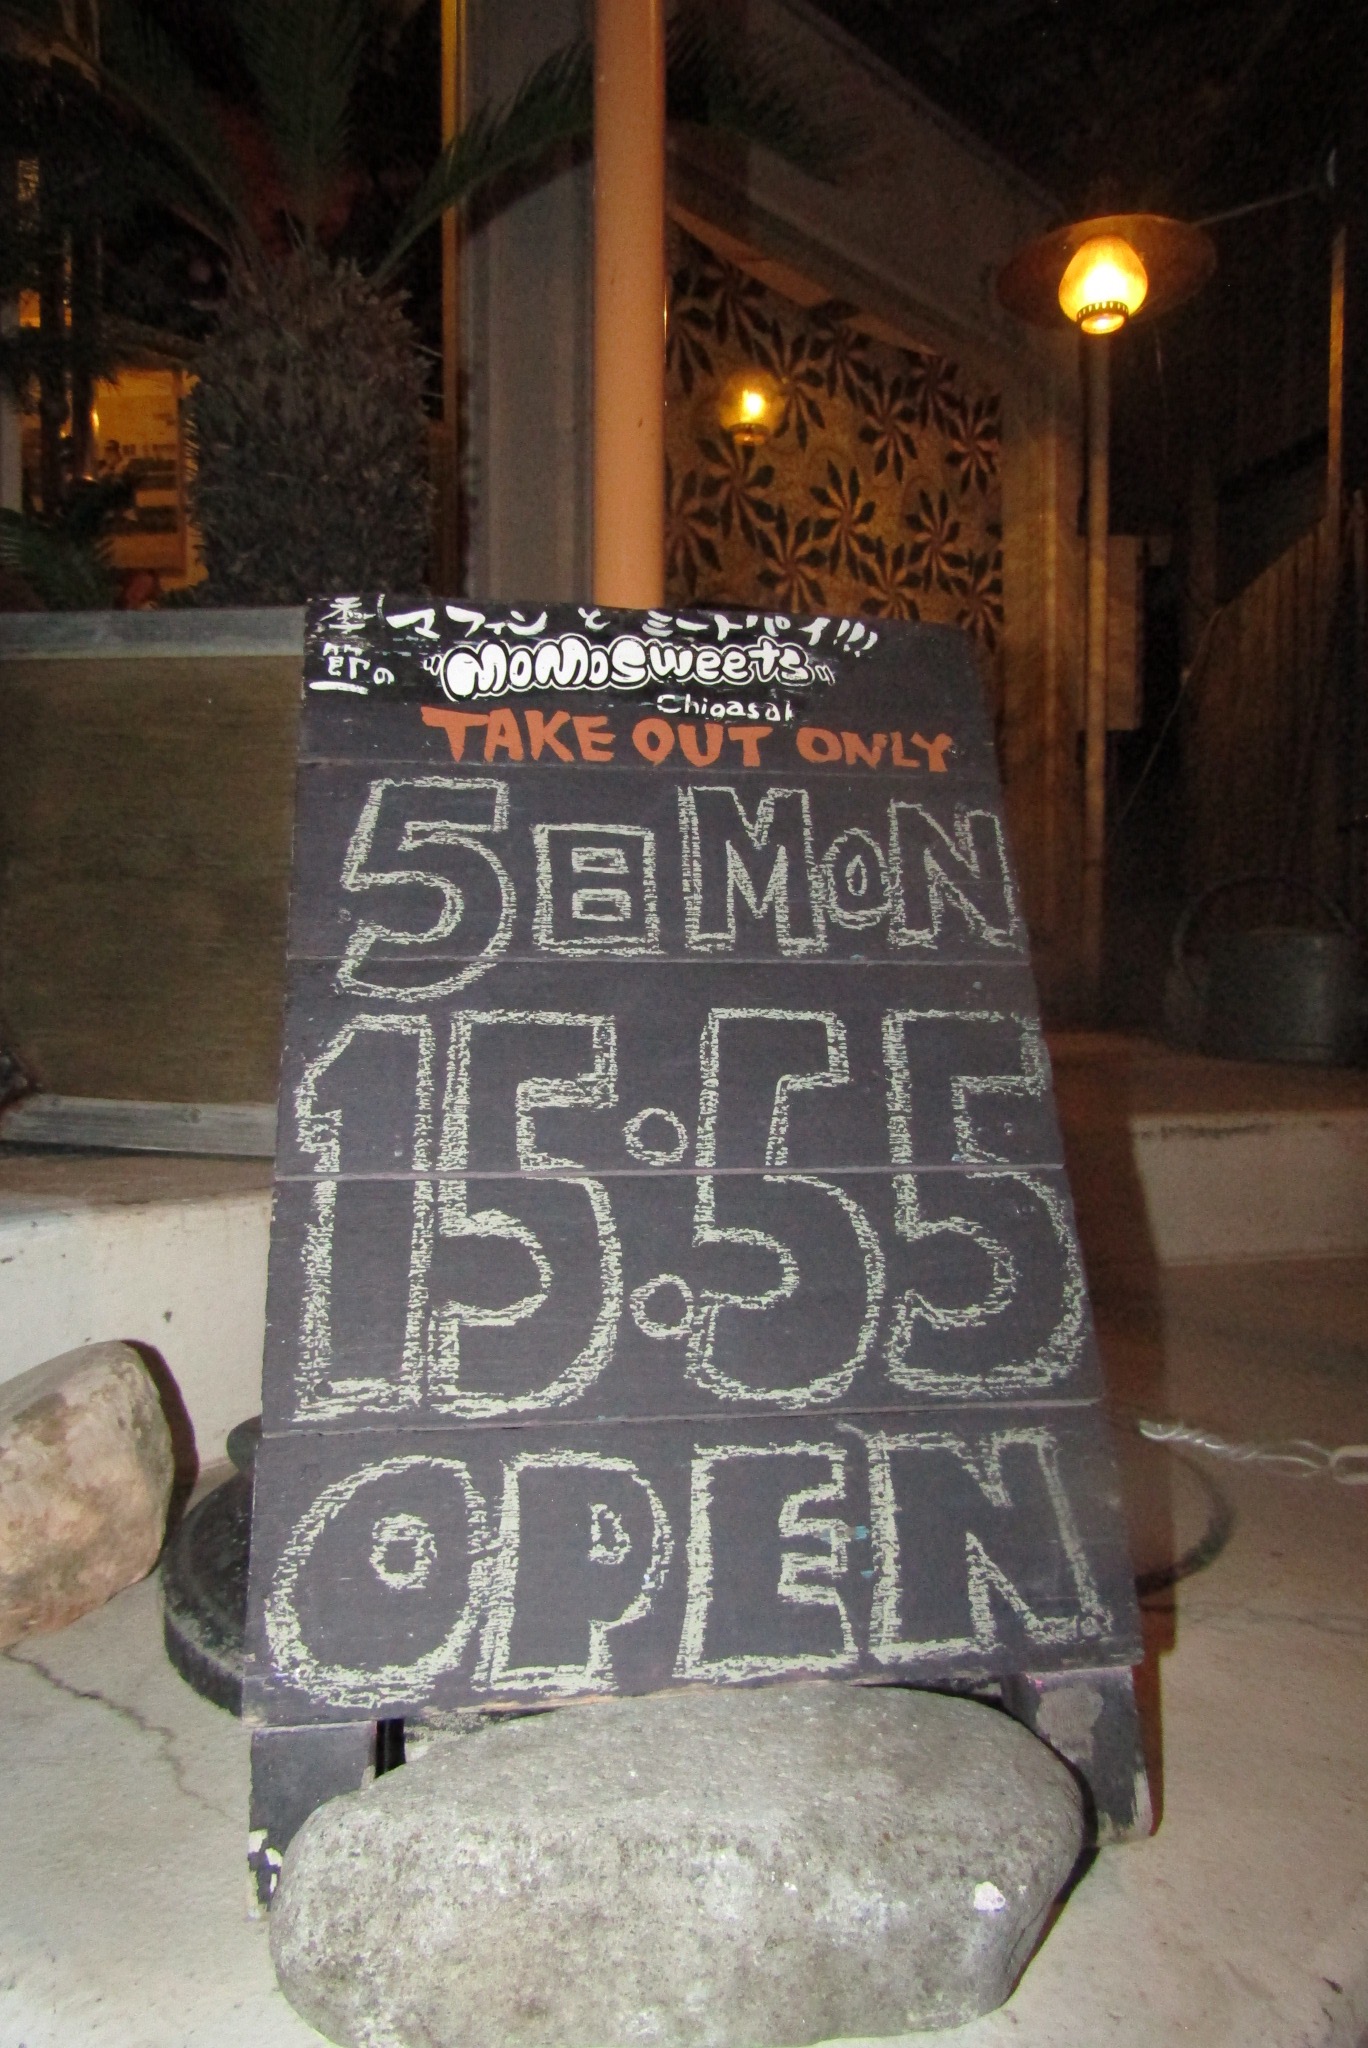 季節の マフィンとミートパイ!!!
"MOMOSweets"
Chigasaki
TAKE OUT ONLY
5日 MON
15:55
OPEN